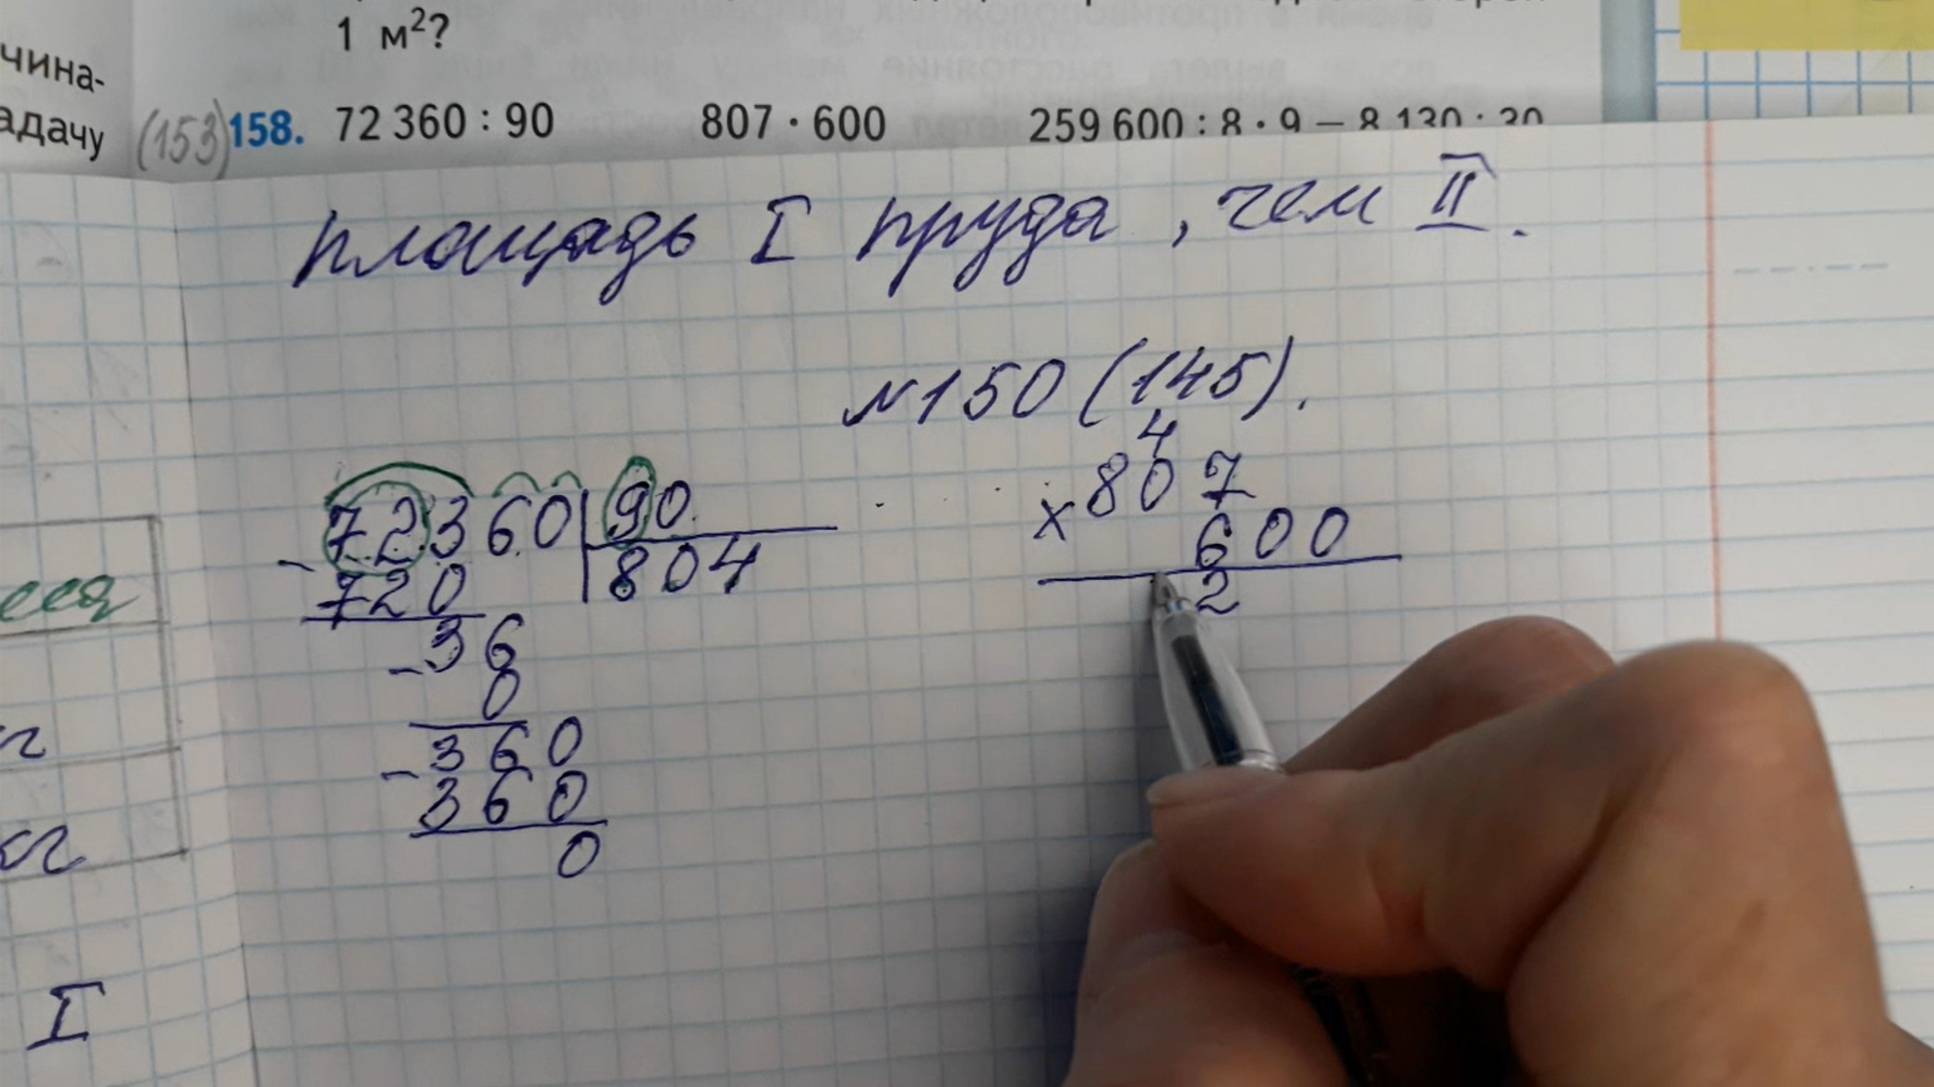 1 м²?
чина-
адачу
(153) 158. 72 360 : 90 807 · 600 259 600 : 8 · 9 – 8 130 : 30
площадь I пруда, чем II.
N150 (145).
72360 90
- 720 804
- 36
0
- 360
360
0
4
× 807
600
2
I